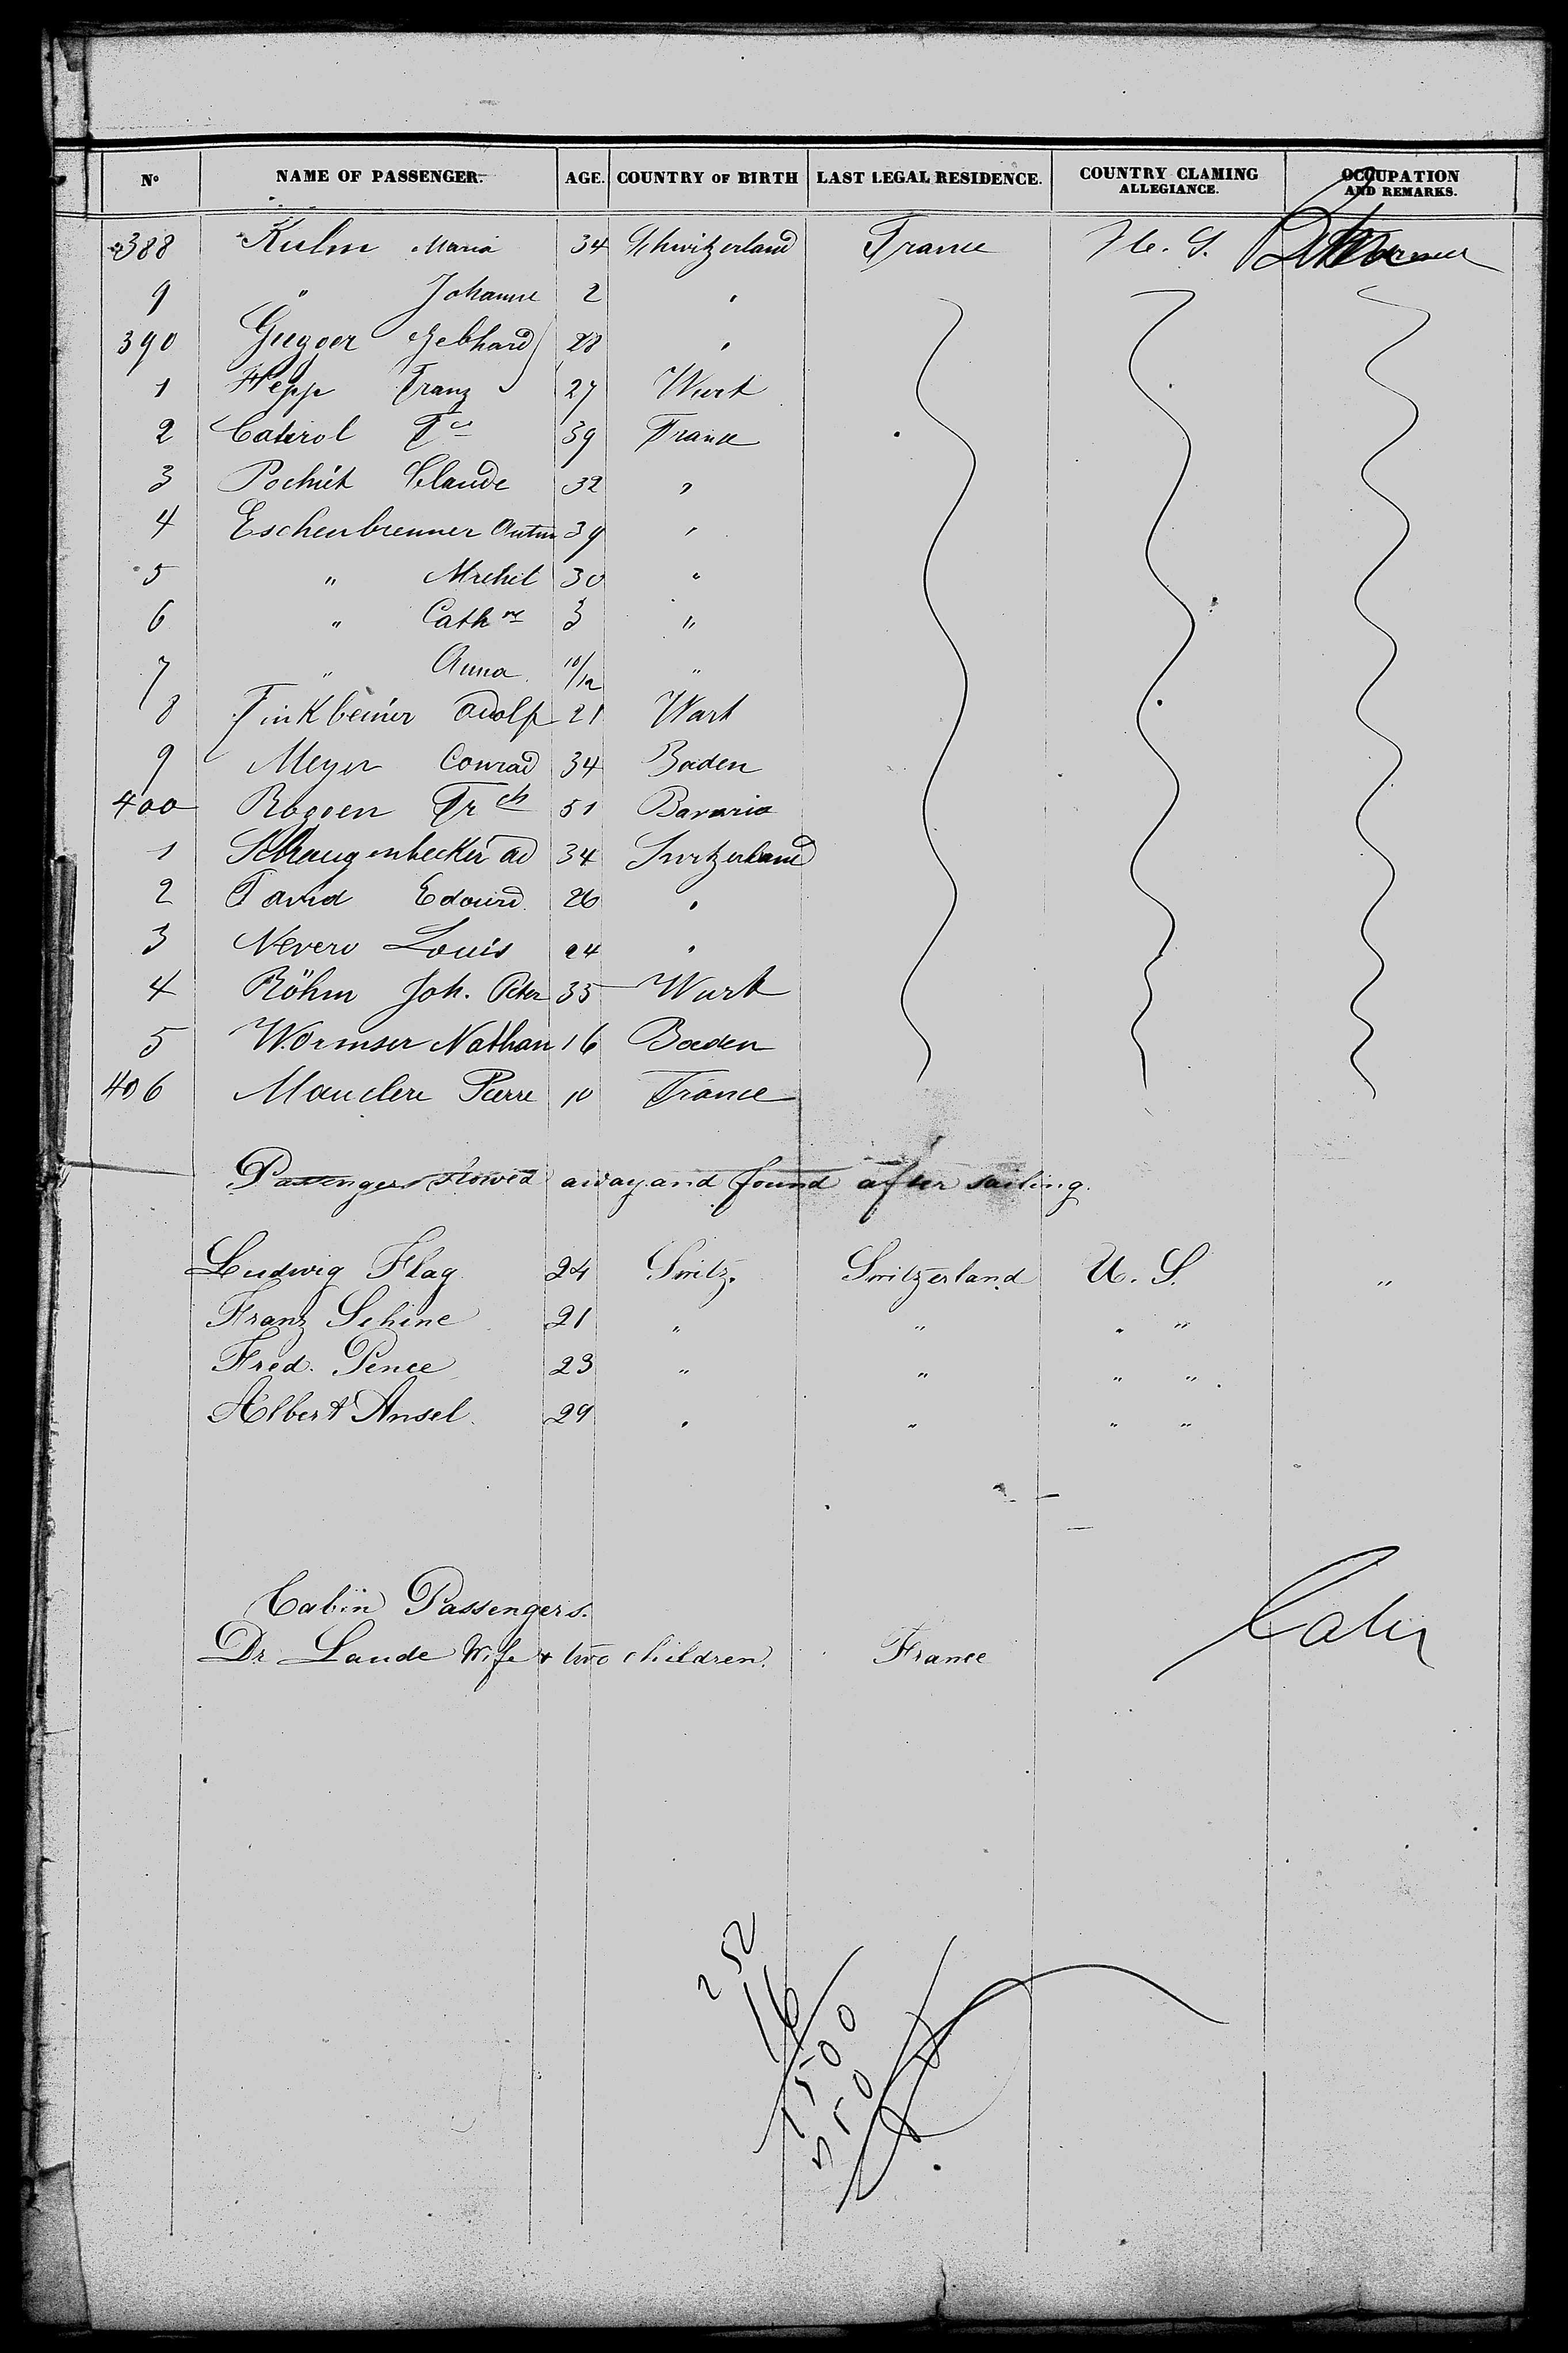 No NAME OF PASSENGER. AGE. COUNTRY OF BIRTH LAST LEGAL RESIDENCE. COUNTRY CLAMING ALLEGIANCE. OCCUPATION AND REMARKS.
388 Kulm Maria 34 Schwitzerland France U. S.
9 " Johanne 2 "
390 Gebhard 28 "
1 Hepp Franz 27 Wurt
2 Catirol Fs 39 France
3 Pochiet Claude 32 "
4 Eschenbrenner Anton 39 "
5 " Michel 30 "
6 " Cathne 3 "
7 " Anna 10/12 "
8 Finkbeiner Adolf 21 Wurt
9 Meyer Conrad 34 Baden
400 Roggen Frch 51 Bavaria
1 Ad 34 Switzerland
2 David Edouard 26 "
3 Louis 24 "
4 Röhm Joh. Peter 35 Wurt
5 Wormser Nathan 16 Baden
406 Mauclere Pierre 10 France
Passengers stowed away and found after sailing.
Ludwig Flag 24 Switz. Switzerland U. S. "
Franz Schine 21 " " " "
Fred. Pence 23 " " " "
Albert Ansel 29 " " " "
Cabin Passengers.
Dr. Laude Wife & two children. France
252
16
1500